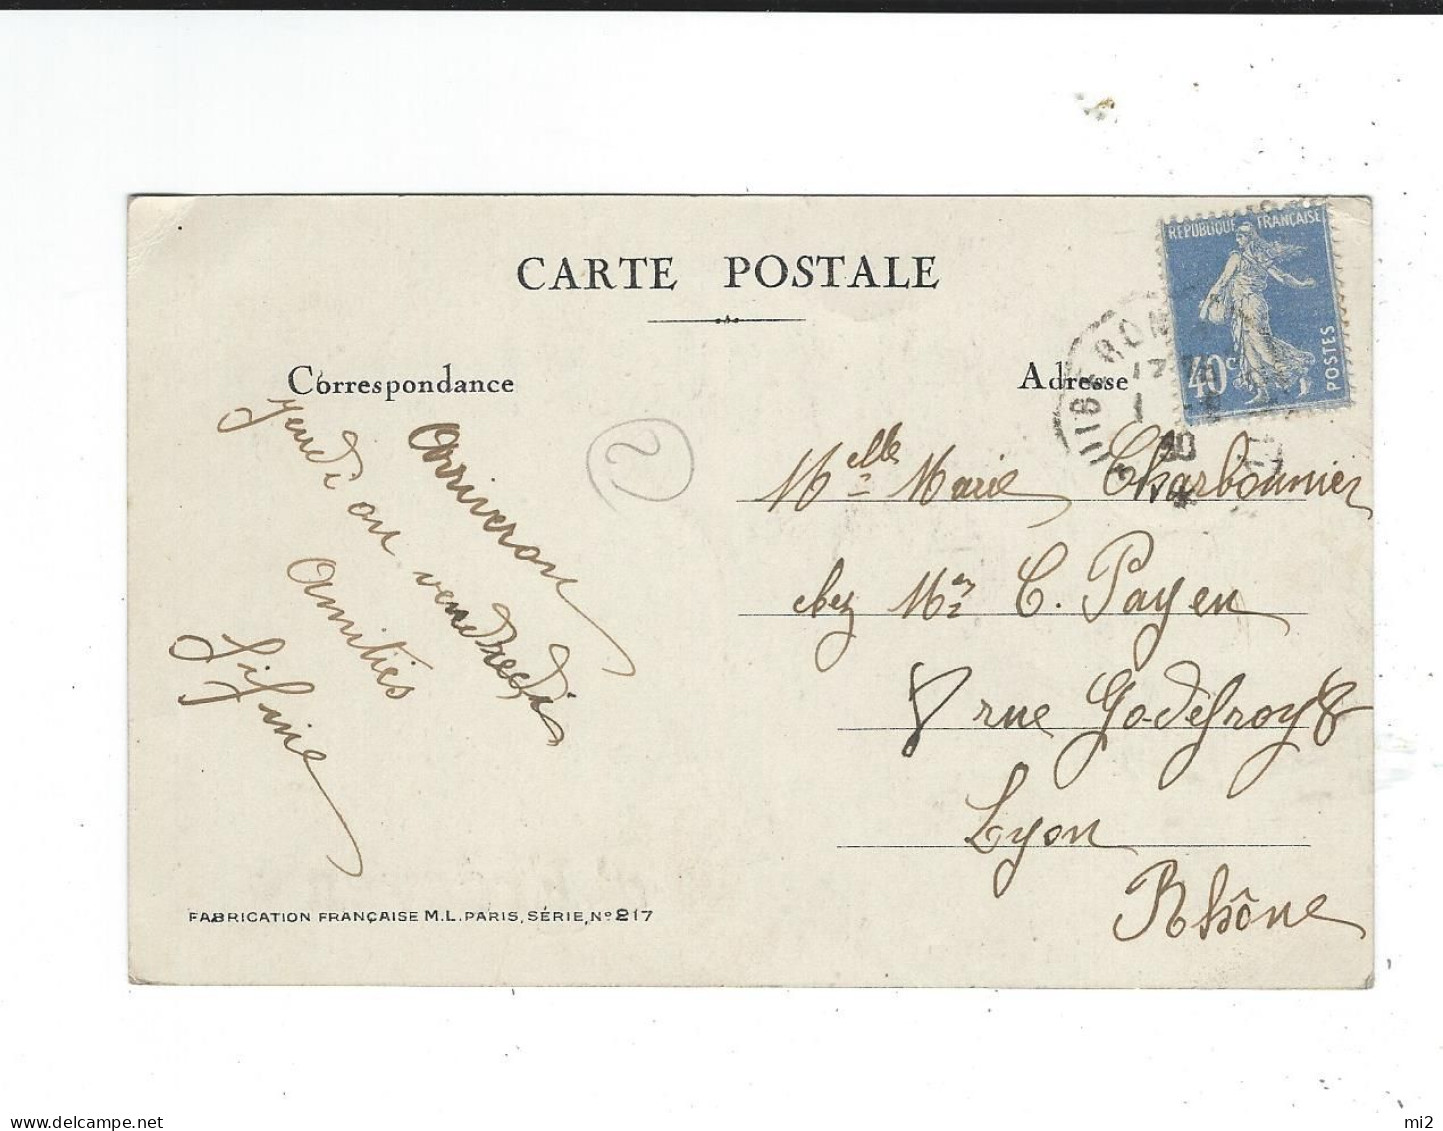 CARTE POSTALE
Correspondance
Arriveron
jeudi ou vendredi
Amitiés
Fifine
2
FABRICATION FRANÇAISE M.L. PARIS, SÉRIE, Nº 217
Adresse
REPUBLIQUE FRANÇAISE
40c
POSTES
17
1
30
Melle Marie Charbonnier
chez Mr C. Payen
8 rue Godefroy 8
Lyon
Rhône
delcampe.net
mi2